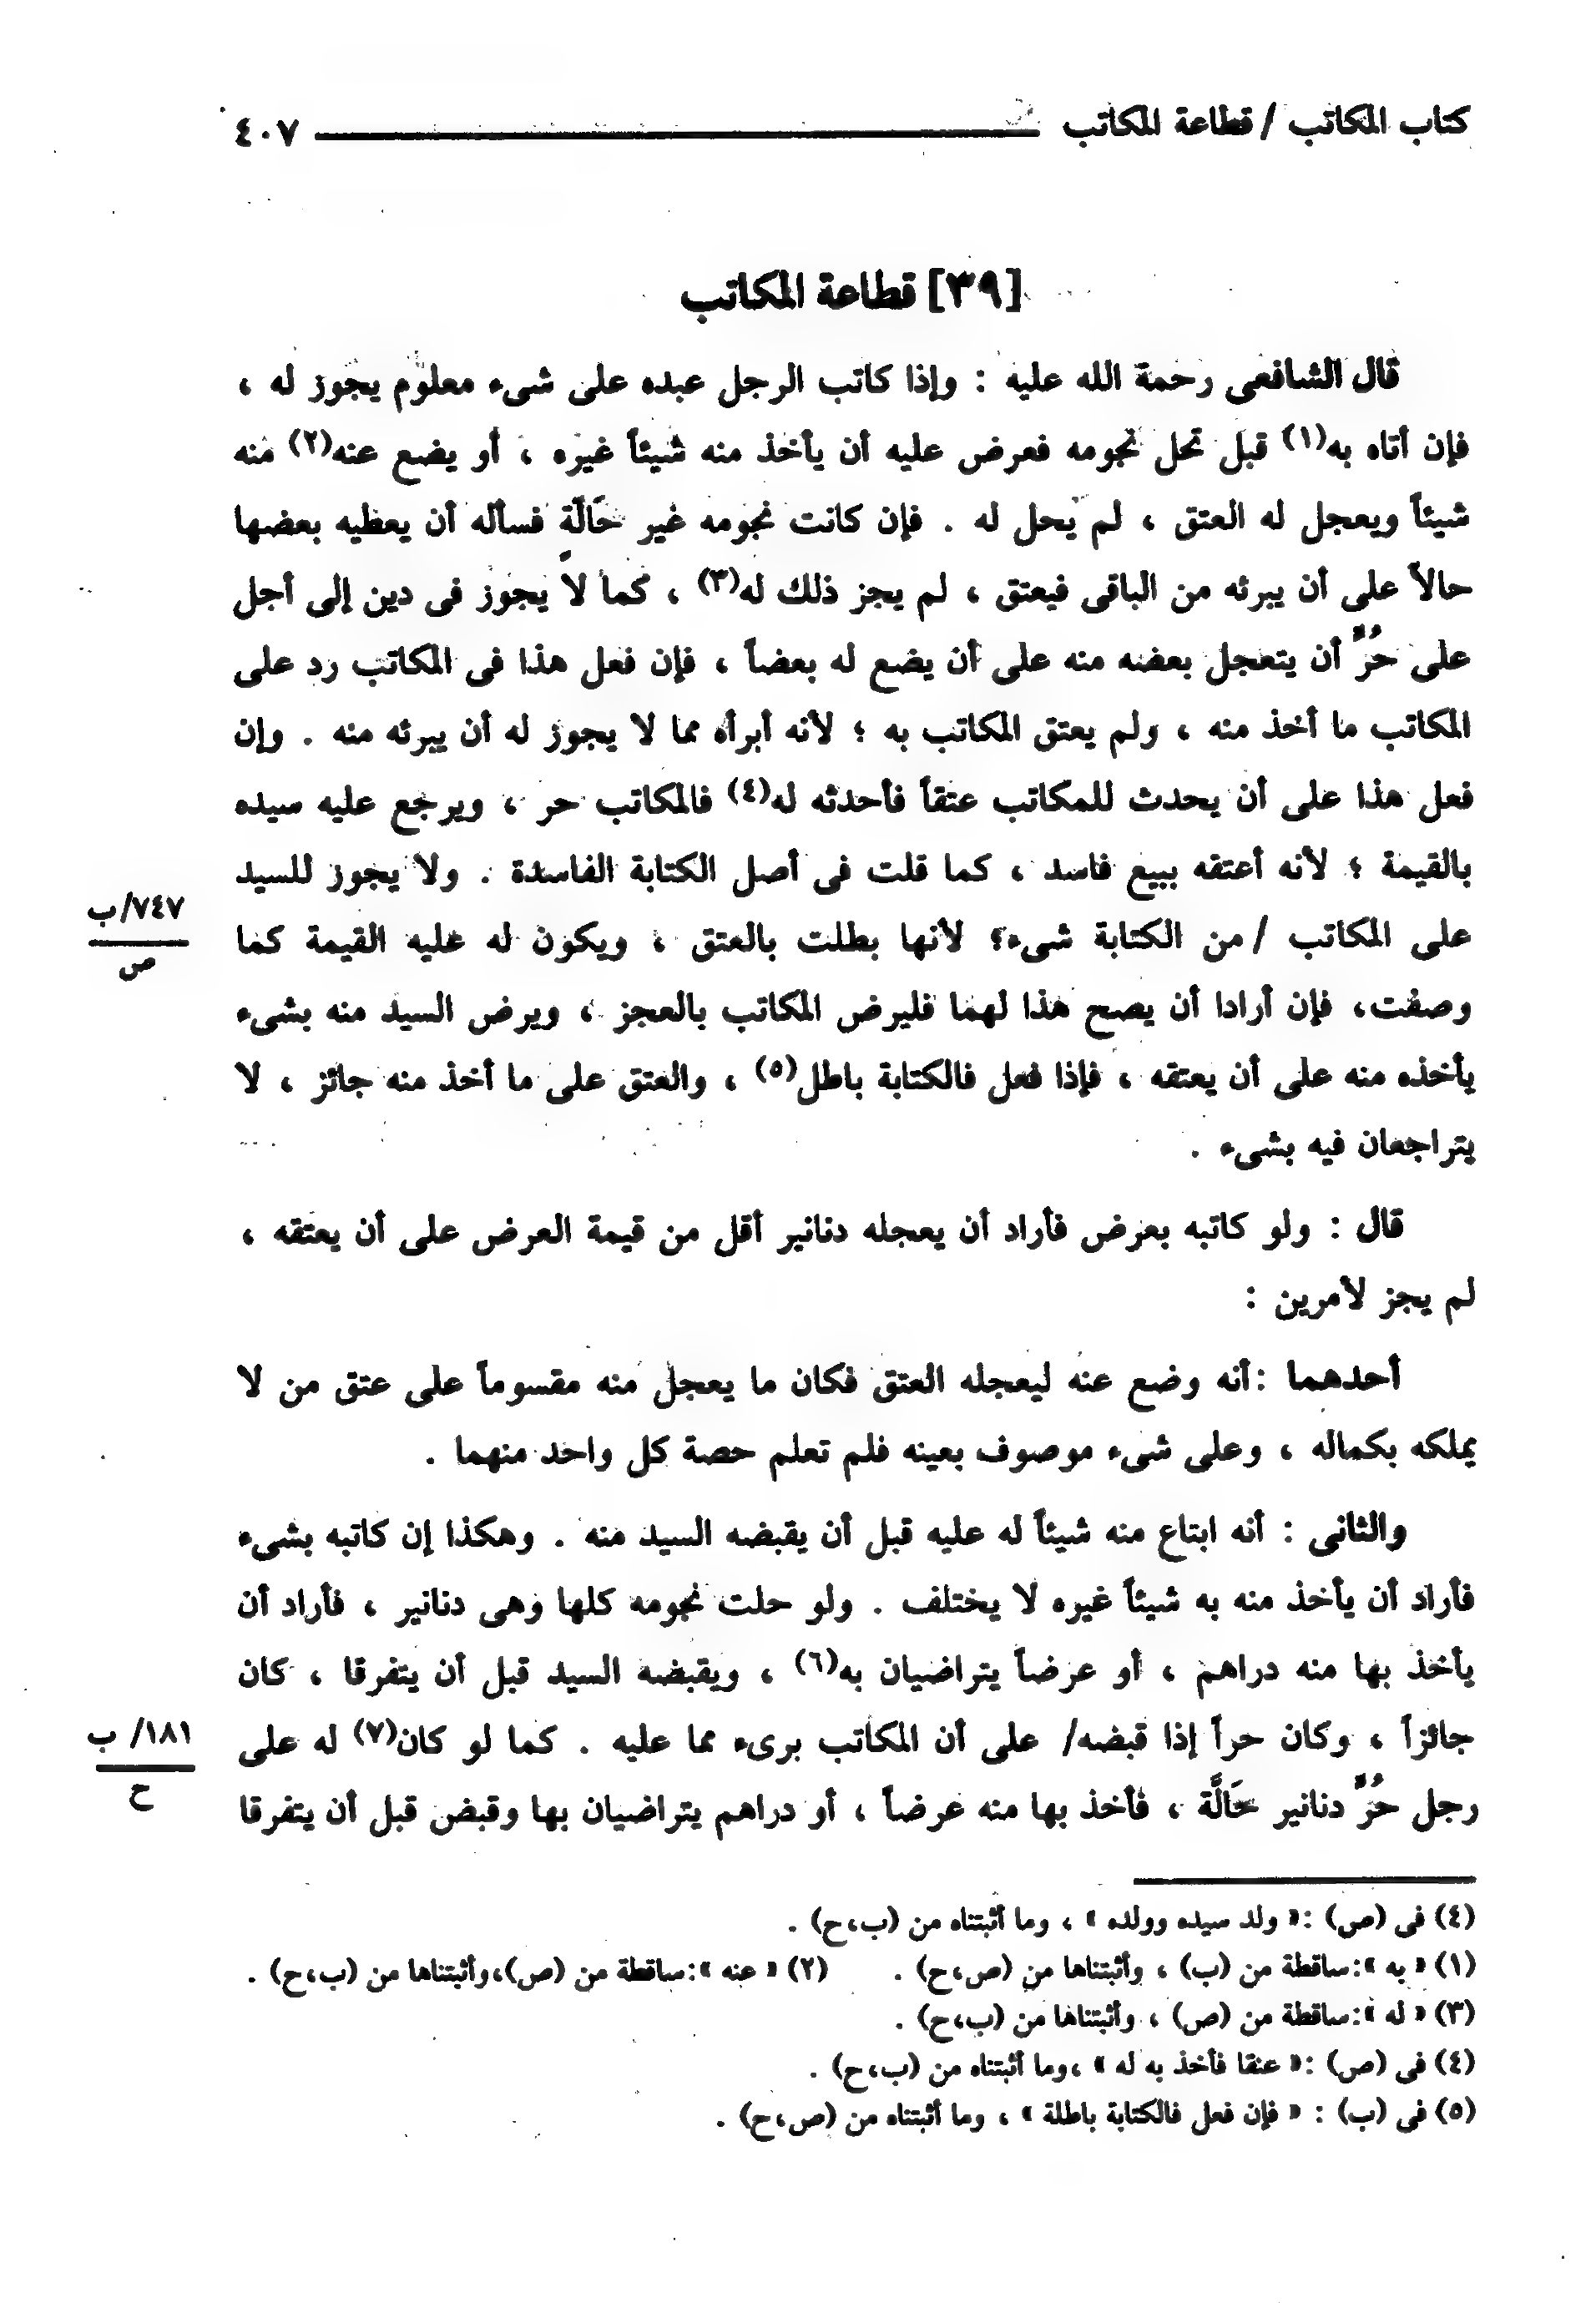 كتاب المكاتب / قطاعة المكاتب ٤٠٧
[٣٩] قطاعة المكاتب
قال الشافعى رحمة الله عليه : وإذا كاتب الرجل عبده على شىء معلوم يجوز له ،
فإن أتاه به(١) قبل تحل نجومه فعرض عليه أن يأخذ منه شيئاً غيره ، أو يضع عنه(٢) منه
شيئاً ويعجل له العتق ، لم يحل له . فإن كانت نجومه غير حَالَّة فسأله أن يعطيه بعضها
حالاً على أن يبرئه من الباقى فيعتق ، لم يجز ذلك له(٣) ، كما لا يجوز فى دين إلى أجل
على حُرٍّ أن يتعجل بعضه منه على أن يضع له بعضاً ، فإن فعل هذا فى المكاتب رد على
المكاتب ما أخذ منه ، ولم يعتق المكاتب به ؛ لأنه أبرأه مما لا يجوز له أن يبرئه منه . وإن
فعل هذا على أن يحدث للمكاتب عتقاً فأحدثه له(٤) فالمكاتب حر ، ويرجع عليه سيده
بالقيمة ؛ لأنه أعتقه ببيع فاسد ، كما قلت فى أصل الكتابة الفاسدة . ولا يجوز للسيد
٧٤٧/ب
ص
على المكاتب / من الكتابة شىء؛ لأنها بطلت بالعتق ، ويكون له عليه القيمة كما
وصفت، فإن أرادا أن يصح هذا لهما فليرض المكاتب بالعجز ، ويرض السيد منه بشىء
يأخذه منه على أن يعتقه ، فإذا فعل فالكتابة باطل(٥) ، والعتق على ما أخذ منه جائز ، لا
يتراجعان فيه بشىء .
قال : ولو كاتبه بعرض فأراد أن يعجله دنانير أقل من قيمة العرض على أن يعتقه ،
لم يجز لأمرين :
أحدهما :أنه وضع عنه ليعجله العتق فكان ما يعجل منه مقسوماً على عتق من لا
يملكه بكماله ، وعلى شىء موصوف بعينه فلم تعلم حصة كل واحد منهما .
والثانى : أنه ابتاع منه شيئاً له عليه قبل أن يقبضه السيد منه . وهكذا إن كاتبه بشىء
فأراد أن يأخذ منه به شيئاً غيره لا يختلف . ولو حلت نجومه كلها وهى دنانير ، فأراد أن
يأخذ بها منه دراهم ، أو عرضاً يتراضيان به(٦) ، ويقبضه السيد قبل أن يتفرقا ، كان
جائزاً ، وكان حراً إذا قبضه/ على أن المكاتب برىء مما عليه . كما لو كان(٧) له على
١٨١/ ب
ح
رجل حُرٍّ دنانير حَالَّة ، فأخذ بها منه عرضاً ، أو دراهم يتراضيان بها وقبض قبل أن يتفرقا
(٤) فى (ص) :« ولد سيده وولده » ، وما أثبتناه من (ب،ح) .
(١) « به »:ساقطة من (ب) ، وأثبتناها من (ص،ح) . (٢) « عنه »:ساقطة من (ص)،وأثبتناها من (ب،ح) .
(٣) « له »:ساقطة من (ص) ، وأثبتناها من (ب،ح) .
(٤) فى (ص) :« عتقا فأخذ به له » ،وما أثبتناه من (ب،ح) .
(٥) فى (ب) : « فإن فعل فالكتابة باطلة » ، وما أثبتناه من (ص،ح) .